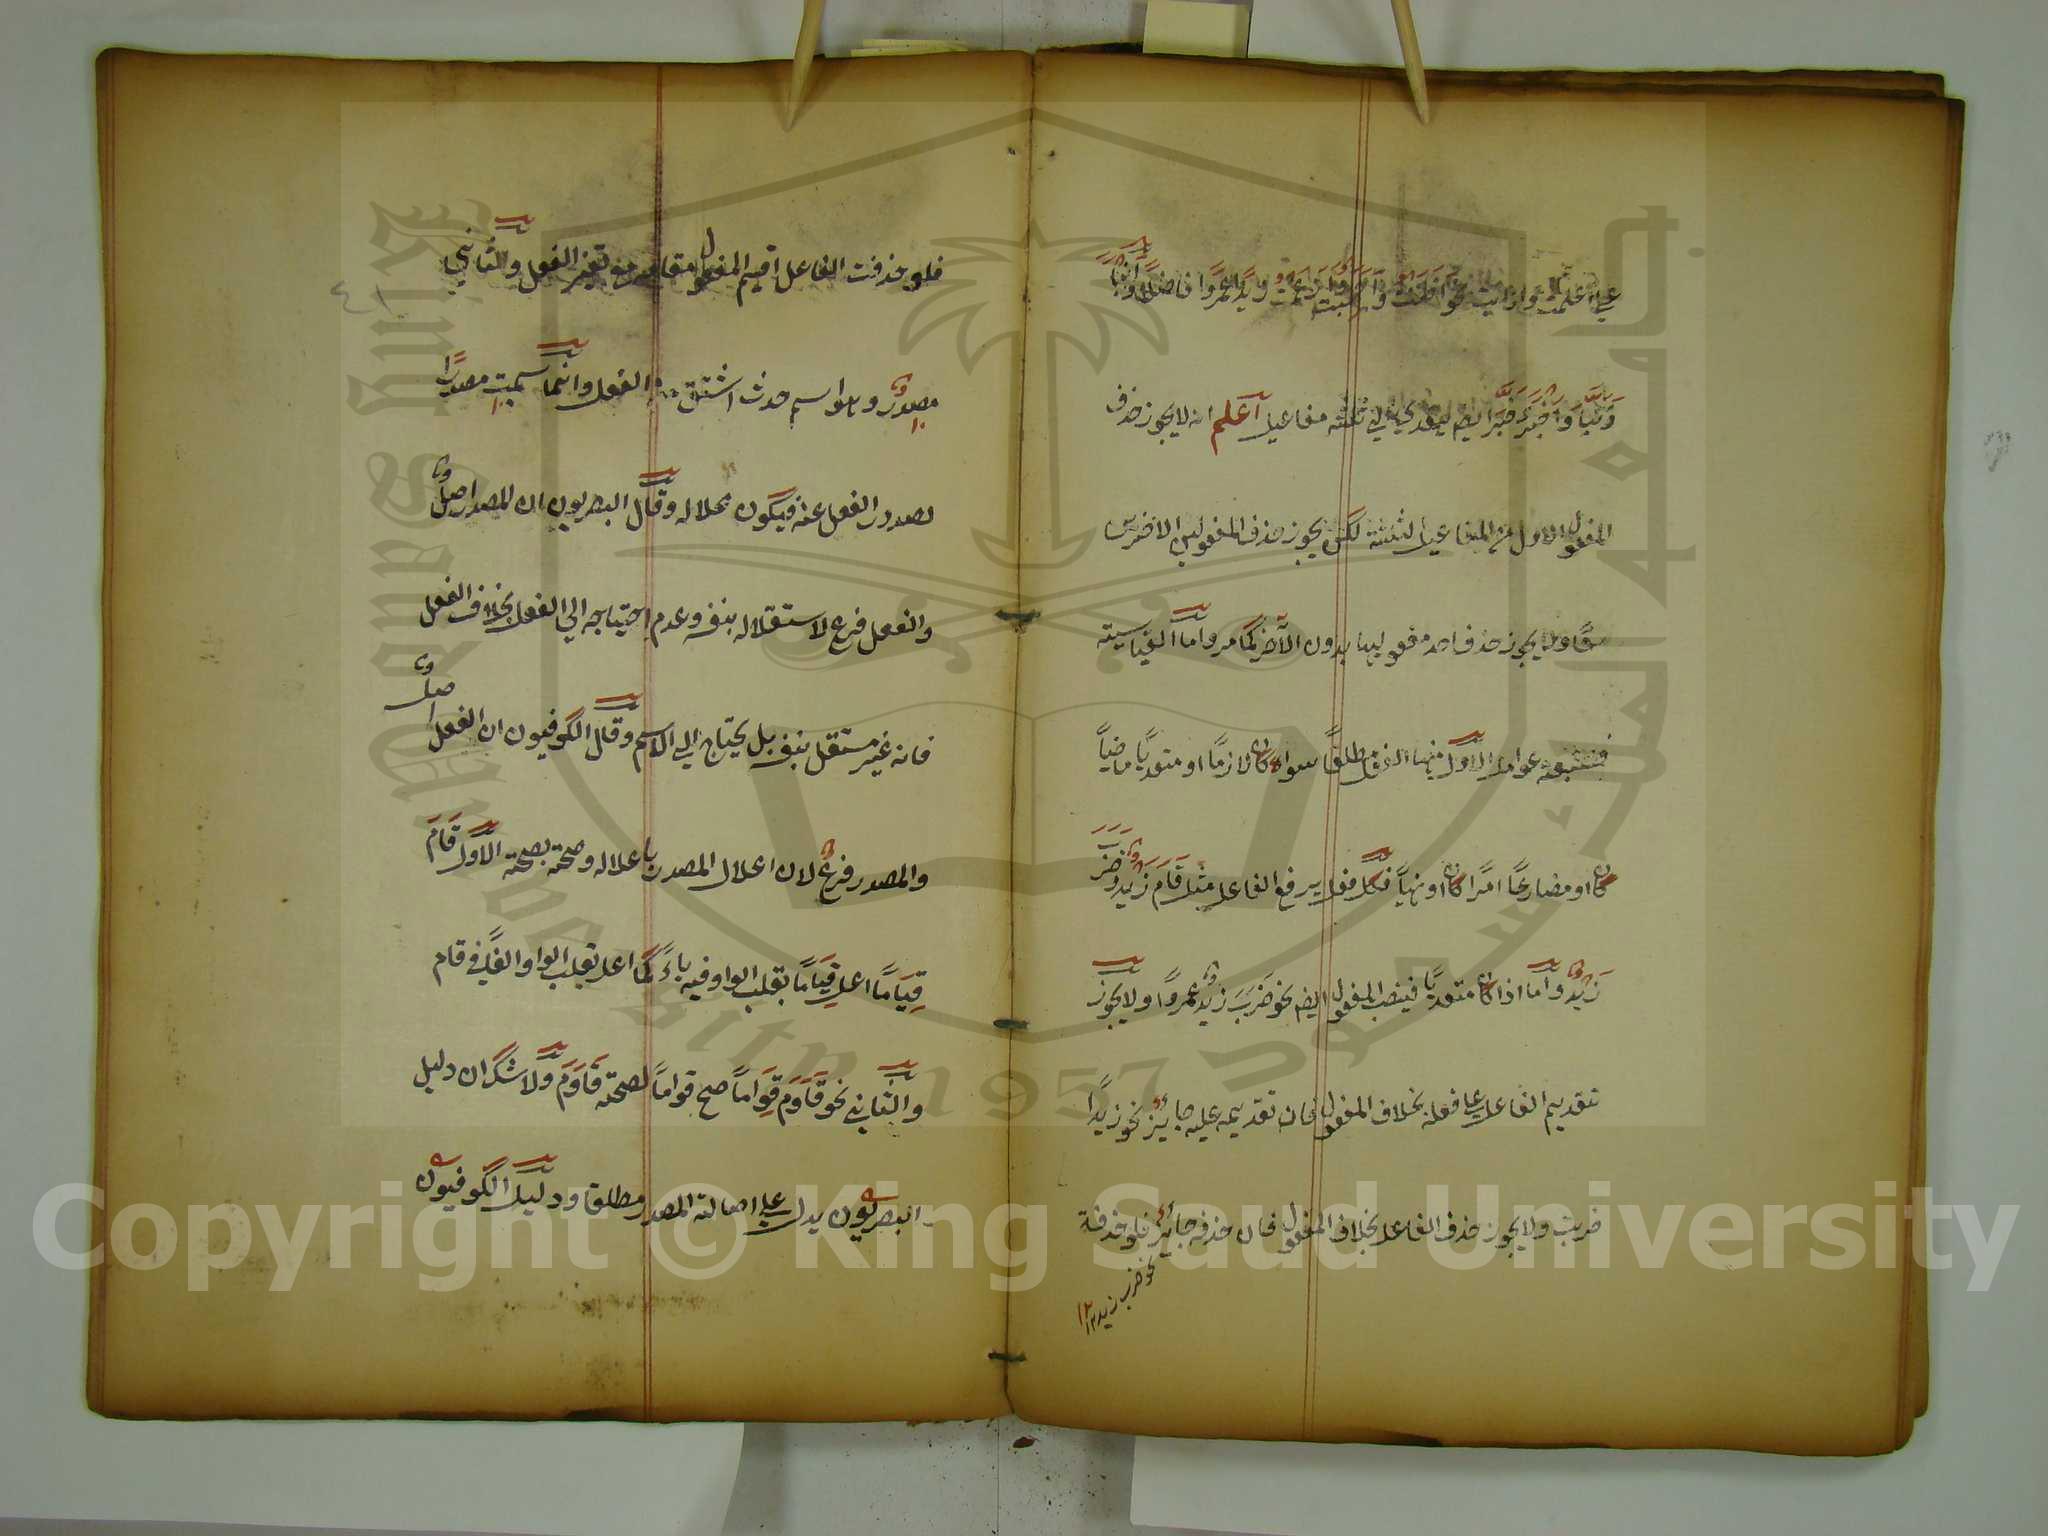 علي اعلمت واراىت نحو اظننت واحسبت وازعمت زيدا عمروا فاضلا وانبا
ونبأ واخبر خبّر ايضم ليتعدى الى ثلثة مفاعيل اعلم انه لا يجوز حذف
المفعول الاول من المفاعيل الثلثة لكن يجوز حذف المفعولين الاخيرين
معًا ولا يجوز حذف احد مفعوليها بدون الآخر كما مر واما القياسية
فسبعة عوامل الاول منها الفعل مطلقًا سواء كان لازمًا او متعديًا ماضيًا
كان او مضارعًا امرًا كان او نهيًا فكل فعل يرفع الفاعل مثل قَامَ زيدٌ وضَرَبَ
زيدٌ واما اذا كان متعديًا فينصب المفعول ايضم نحو ضَرَبَ زيدٌ عمروًا ولا يجوز
تقديم الفاعل على فعله بخلاف المفعول فان تقديمه عليه جايز نحو زيدًا
ضربت ولا يجوز حذف الفاعل بخلاف المفعول فان حذفه جايز فلو حذفة
نحو ضرب زيد ١٢
فلو حذفت الفاعل اقيم المفعول مقامه من تغير الفعل والثاني
مصدرٌ وهو اسم حدث اشتق منه الفعل وانما سميت مصدرًا
لصدور الفعل عنه فيكون محلا له وقال البصريون ان المصدر اصلٌ
والفعل فرع لاستقلاله بنفسه وعدم احتياجه الي الفعل بخلاف الفعل
فانه غير مستقل بنفسه بل يحتاج الي الاسم وقال الكوفيون ان الفعل اصلٌ
والمصدر فرعٌ لان اعلال المصدر باعلاله وصحته بصحته الاول قَامَ
قِيَامًا اعل قِيَامًا بقلب الواو فيه ياءً كما اعل بقلب الواو الفًا في قام
والثاني نحو قَاوَمَ قِوَامًا صح قوامًا لصحته قَاوَمَ ولا شك ان دليل
البصريون يدل على اصالة المصدر مطلقا ودليل الكوفيون